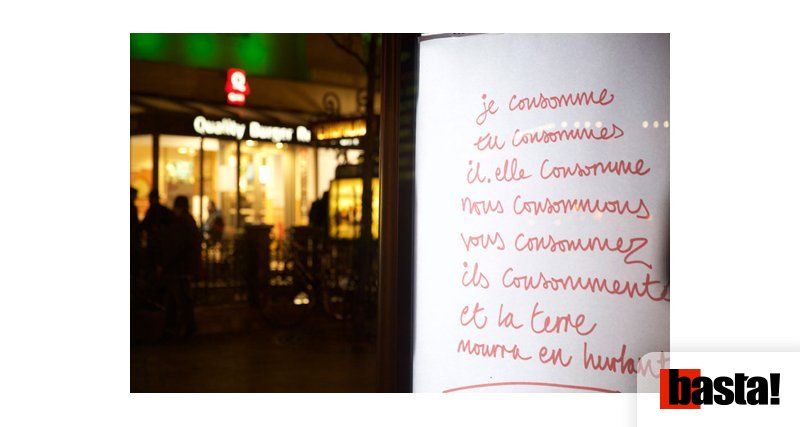 Quality Burger
je consomme
tu consommes
il.elle consomme
nous consommons
vous consommez
ils consomment
et la terre
mourra en hurlant
basta!